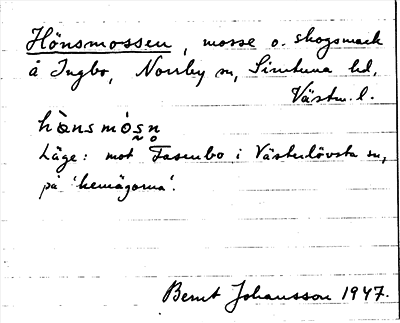 Hönsmossen, mosse o. skogsmark
å Ingbo, Norrby sn, Simtuna hd,
Västm. l.
hònsmósn̥
Läge: mot Fasenbo i Västerlövsta sn,
på 'hemägorna'.
Bernt Johansson 1947.